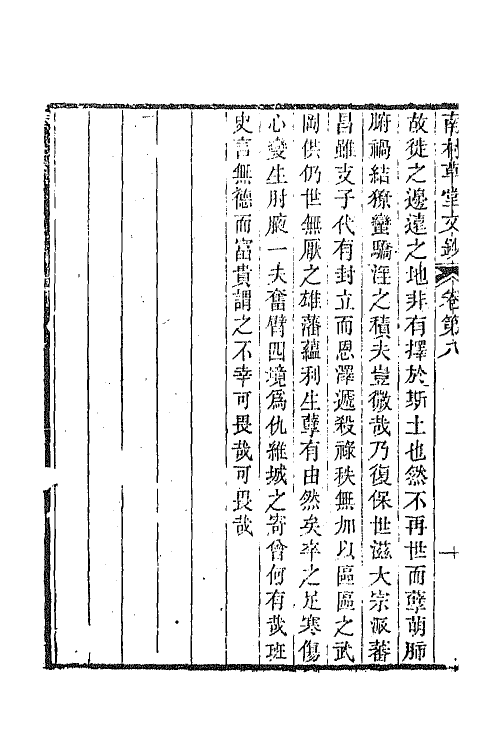 南村草堂文鈔 卷第八 十
故徙之邊遠之地非有擇於斯土也然不再世而孽萌肺
腑禍結獠蠻驕淫之積夫豈微哉乃復保世滋大宗派蕃
昌雖支子代有封立而恩澤遞殺祿秩無加以區區之武
岡供仍世無厭之雄藩蘊利生孽有由然矣卒之足寒傷
心變生肘腋一夫奮臂四境爲仇維城之寄曾何有哉班
史言無德而富貴謂之不幸可畏哉可畏哉